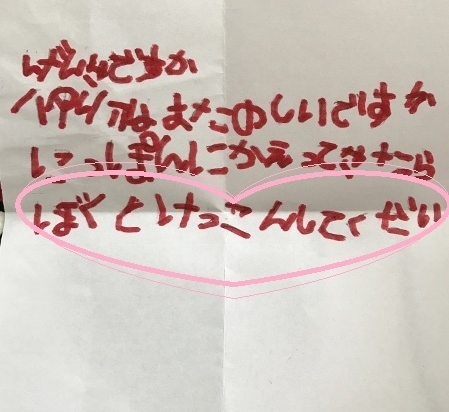 げんきですか
パリはまたのしいですか
にっぽんにかえってきたら
ぼくとけっこんしてください